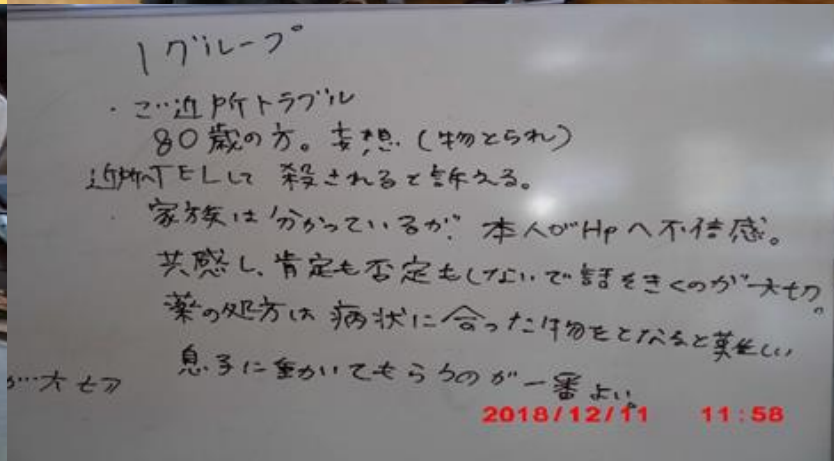 1グループ
・ご近所トラブル
80歳の方。妄想（物とられ）
近所へTELして 殺されると訴える。
・家族は分かっているが、本人がHpへ不信感。
共感し、肯定も否定もしないで話をきくのが大切。
薬の処方は 病状に合った物をとなると難しい
息子に動いてもらうのが一番よい。
が…大切
2018/12/11 11:58